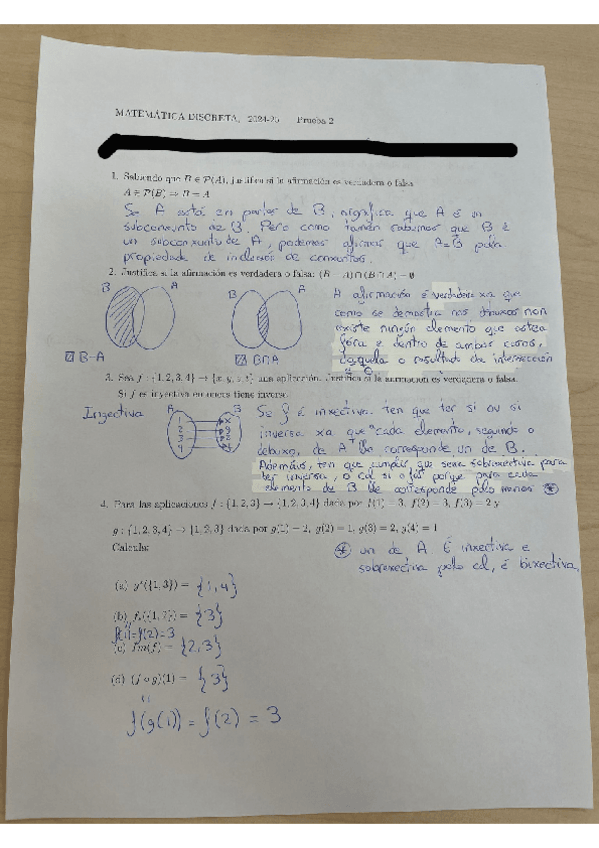 MATEMÁTICA DISCRETA, 2024-25 Prueba 2
1. Sabiendo que B ∈ P(A), justifica si la afirmación es verdadera o falsa
A ∈ P(B) ⇒ B = A
Se A está en partes de B, significa que A é un
subconxunto de B. Pero como tamén sabemos que B é
un subconxunto de A, podemos afirmar que A=B pola
propiedade de inclusión de conxuntos.
2. Justifica si la afirmación es verdadera o falsa: (B − A) ∩ (B ∩ A) = ∅
B A B A
B-A B∩A
A afirmación é verdadera xa que
como se demostra nos dibuxos non
existe ningún elemento que estea
fóra e dentro de ambos casos,
o resultado da intersección
3. Sea f : {1, 2, 3, 4} → {x, y, z, t} una aplicación. Justifica si la afirmación es verdadera o falsa.
Si f es inyectiva entonces tiene inversa.
Inxectiva
A B
1 x
2 y
3 z
4 t
Se f é inxectiva ten que ter si ou si
inversa xa que cada elemento, segundo o
debuxo, de A lle corresponde un de B.
Ademáis, ten que cumplir que sexa sobrexectiva para
ter inversa, o cal si o fai porque para cada
elemento de B lle corresponde polo menos ⊛
4. Para las aplicaciones f : {1, 2, 3} → {1, 2, 3, 4} dada por f(1) = 3, f(2) = 3, f(3) = 2 y
g : {1, 2, 3, 4} → {1, 2, 3} dada por g(1) = 2, g(2) = 1, g(3) = 2, g(4) = 1
Calcula:
⊛ un de A. É inxectiva e
sobrexectiva polo cal, é bixectiva.
(a) g*({1, 3}) = {1,4}
(b) f*({1, 2}) = {3}
f(1)=f(2)=3
(c) Im(f) = {2,3}
(d) (f ∘ g)(1) = {3}
f(g(1)) = f(2) = 3